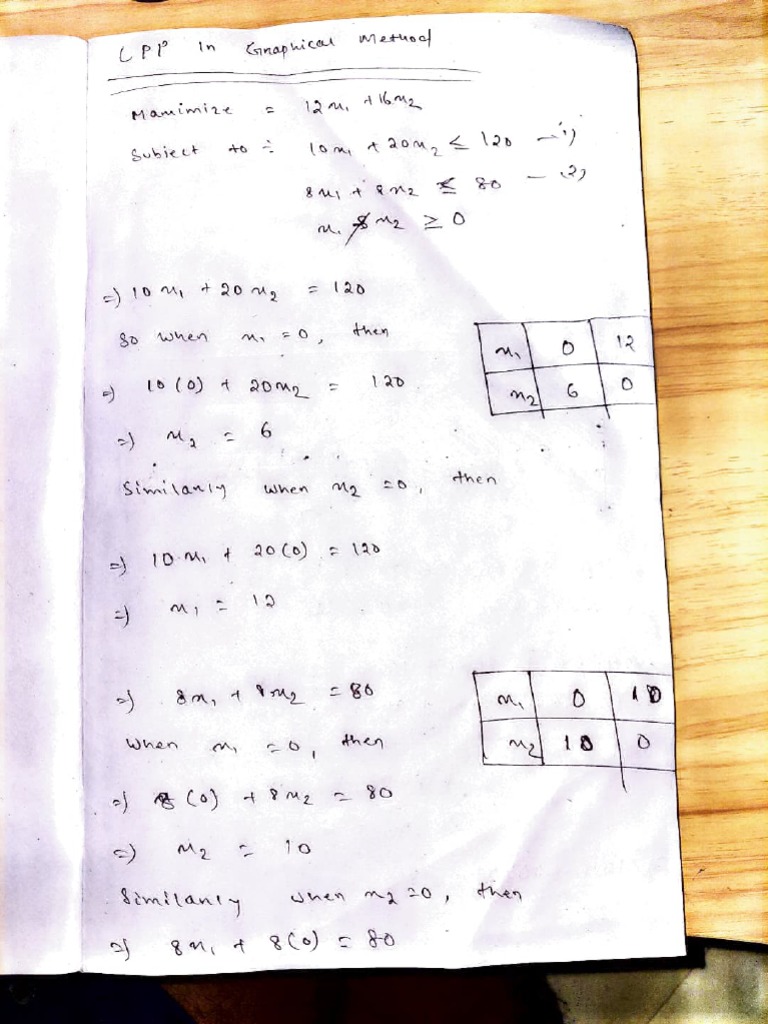 LPP in Graphical Method
Maximize = 12x₁ + 16x₂
Subject to ÷ 10x₁ + 20x₂ ≤ 120 —(1)
8x₁ + 8x₂ ≤ 80 —(2)
x₁ & x₂ ≥ 0
=) 10x₁ + 20x₂ = 120
So when x₁ = 0, then
=) 10(0) + 20x₂ = 120
=) x₂ = 6
x₁ 0 12
x₂ 6 0
Similarly when x₂ = 0, then
=) 10x₁ + 20(0) = 120
=) x₁ = 12
=) 8x₁ + 8x₂ = 80
When x₁ = 0, then
x₁ 0 10
x₂ 10 0
=) 8(0) + 8x₂ = 80
=) x₂ = 10
Similarly when x₂ = 0, then
=) 8x₁ + 8(0) = 80